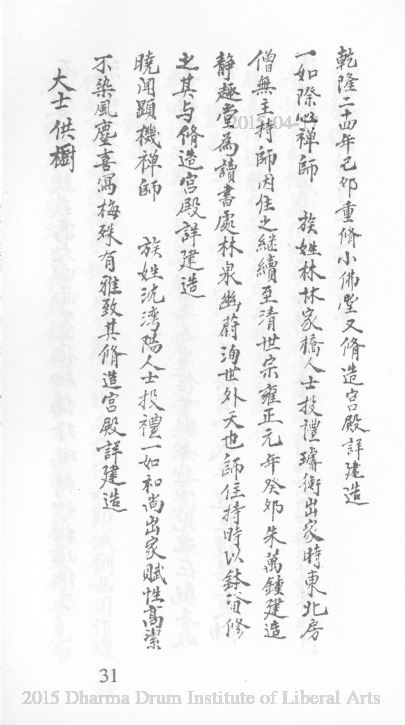 乾隆二十四年己卯重修小佛堂又脩造宮殿詳建造
一如際心禅師 族姓林林家橋人士投禮璿衡出家時東北房
僧無主持師因住之継續至清世宗雍正元年癸卯朱萬鍾建造
靜趣堂為讀書處林泉幽蔚洵世外天也師住持時以鉢資修
之其与脩造宮殿詳建造
曉聞顕機禅師 族姓沈湾陽人士投禮一如和尚出家賦性高潔
不染風塵喜寫梅殊有雅致其脩造宮殿詳建造
大士供橱
31
2015-04-
2015 Dharma Drum Institute of Liberal Arts